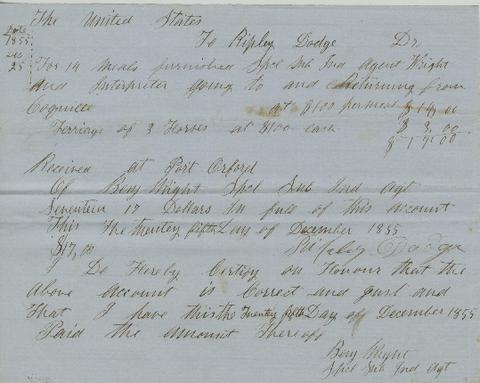 The United States
To Ripley Dodge Dr
Date
1855
Dec
25
For 14 Meals furnished Spcl Sub Ind Agent Wright
and Interpreter going to and Returning from
Coquille at $1.00 per meal $14.00
Ferriage of 3 Horses at $1.00 each $3.00
$17.00
Received at Port Orford
Of Benj Wright Spcl Sub Ind Agt
Seventeen 17 Dollars In full of this account
This the twenty fifth Day of December 1855
$17,00 Ripley Dodge
I Do Hereby Certify on Honour that the
Above account is Correct and Just and
That I have this the Twenty fifth Day of December 1855
Paid the amount Thereof
Benj
Spcl Sub Ind Agt